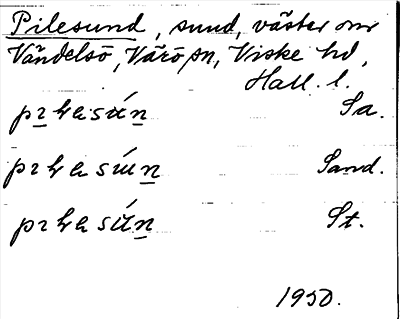 Pilesund, sund, väster om
Vändelsö, Värö sn, Viske hd,
Hall. l.
Sa.
Sand.
St.
1950.